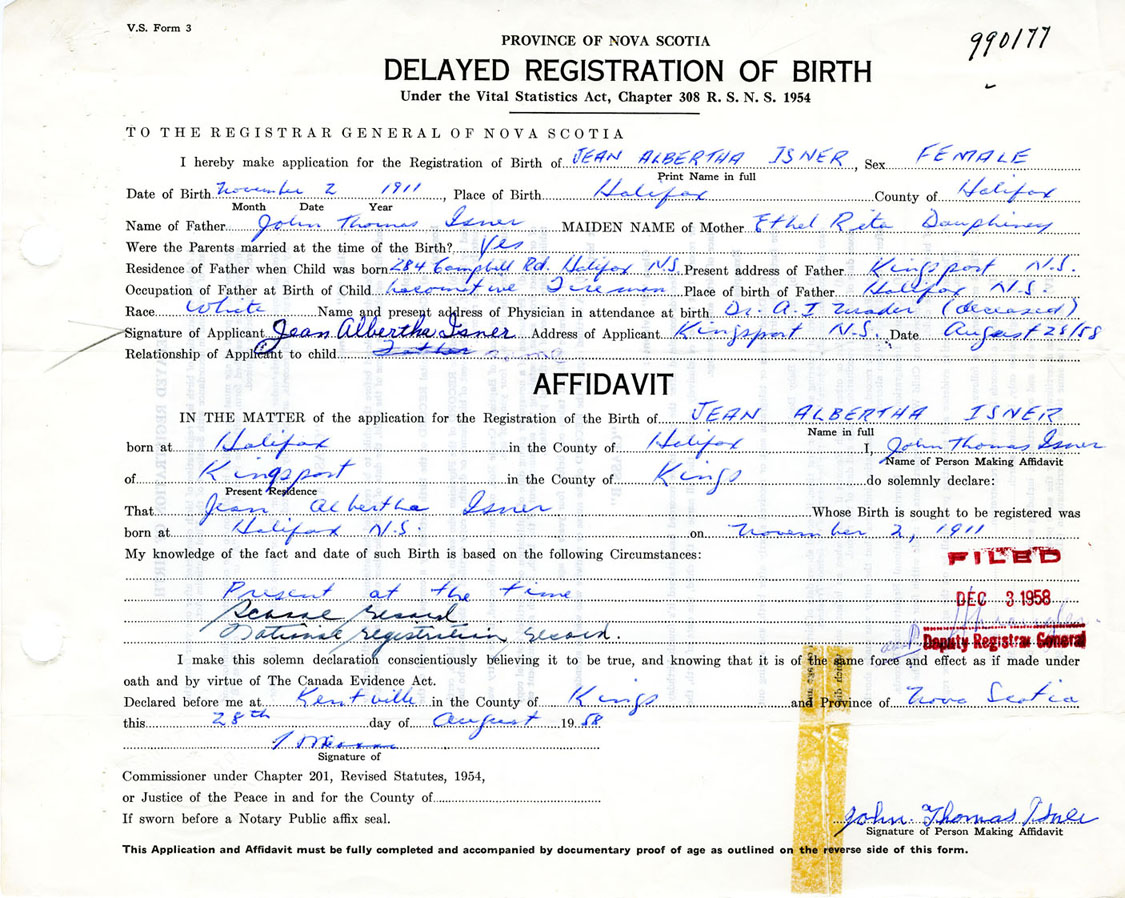 V.S. Form 3
990177
PROVINCE OF NOVA SCOTIA
DELAYED REGISTRATION OF BIRTH
Under the Vital Statistics Act, Chapter 308 R. S. N. S. 1954
TO THE REGISTRAR GENERAL OF NOVA SCOTIA
I hereby make application for the Registration of Birth of JEAN ALBERTHA ISNER, Sex FEMALE
Print Name in full
Date of Birth November 2 1911, Place of Birth Halifax County of Halifax
Month Date Year
Name of Father John Thomas Isner MAIDEN NAME of Mother Ethel Reta Dauphiney
Were the Parents married at the time of the Birth? Yes
Residence of Father when Child was born 284 Campbell Rd. Halifax N.S. Present address of Father Kingsport N.S.
Occupation of Father at Birth of Child Locomotive Fireman Place of birth of Father Halifax N.S.
Race White Name and present address of Physician in attendance at birth Dr. A. I Mader (deceased)
Signature of Applicant Jean Albertha Isner Address of Applicant Kingsport N.S. Date August 28/58
Relationship of Applicant to child Father
AFFIDAVIT
IN THE MATTER of the application for the Registration of the Birth of JEAN ALBERTHA ISNER
Name in full
born at Halifax in the County of Halifax I, John Thomas Isner
Name of Person Making Affidavit
of Kingsport in the County of Kings do solemnly declare:
Present Residence
That Jean Albertha Isner Whose Birth is sought to be registered was
born at Halifax N.S. on November 2, 1911
My knowledge of the fact and date of such Birth is based on the following Circumstances:
FILED
Present at the time
DEC 3 1958
record
National registration record.
Deputy Registrar General
I make this solemn declaration conscientiously believing it to be true, and knowing that it is of the same force and effect as if made under
oath and by virtue of The Canada Evidence Act.
Declared before me at Kentville in the County of Kings and Province of Nova Scotia
this 28th day of August 1958
Signature of
Commissioner under Chapter 201, Revised Statutes, 1954,
or Justice of the Peace in and for the County of
If sworn before a Notary Public affix seal.
John Thomas Isner
Signature of Person Making Affidavit
This Application and Affidavit must be fully completed and accompanied by documentary proof of age as outlined on the reverse side of this form.